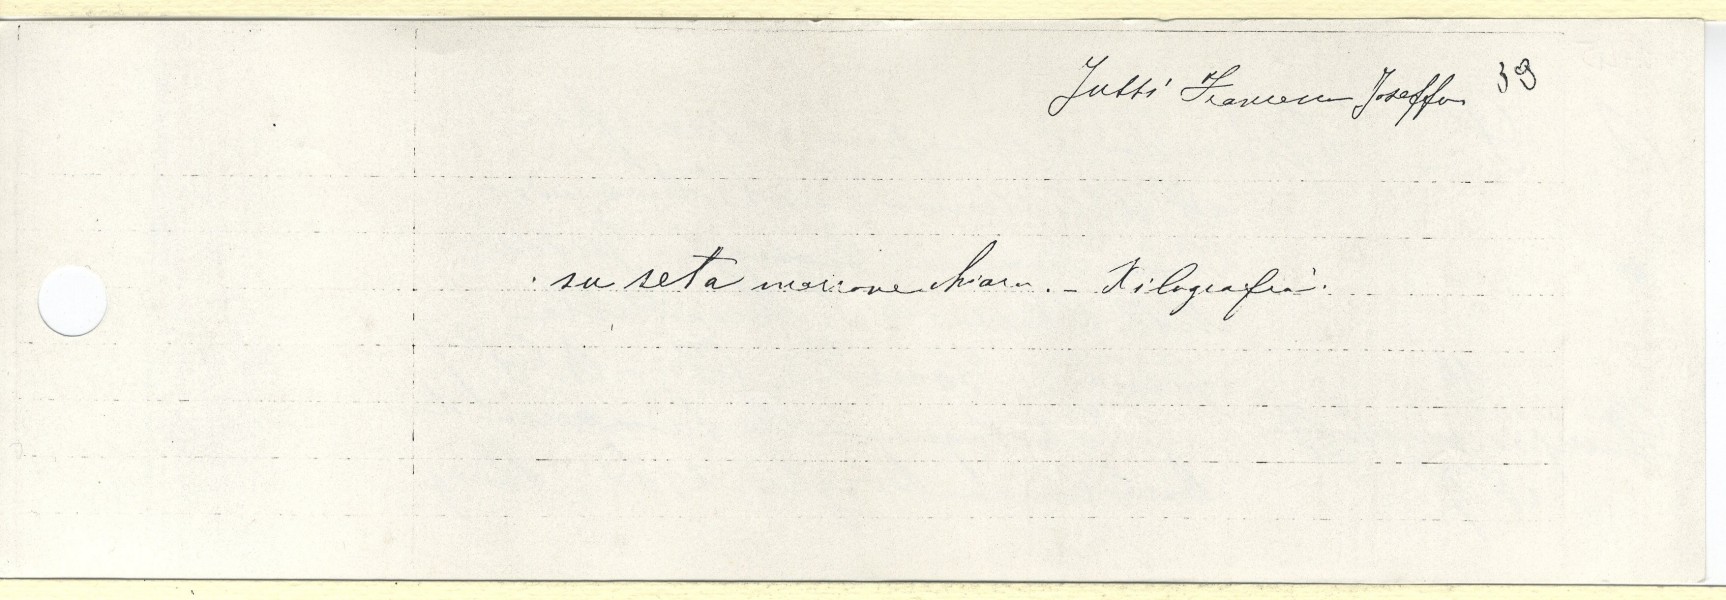 Jutti Francesco Joseffo 39
su seta marrone chiaro. - Xilografia.